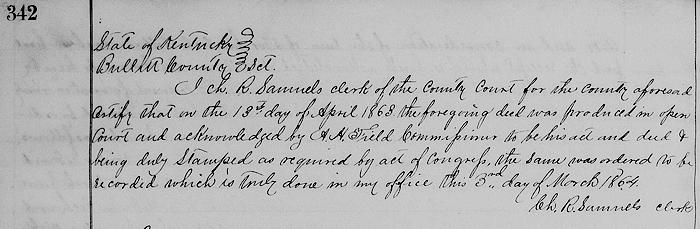 342
State of Kentucky }
Bullitt County } Sct.
I Ch. R. Samuels clerk of the County Court for the county aforesaid
certify that on the 13th day of April 1863 the foregoing deed was produced in open
Court and acknowledged by A. H. Field Commissioner to be his act and deed &
being duly Stamped as required by act of Congress, the same was ordered to be
recorded which is truly done in my office this 3rd day of March 1864.
Ch. R. Samuels clerk